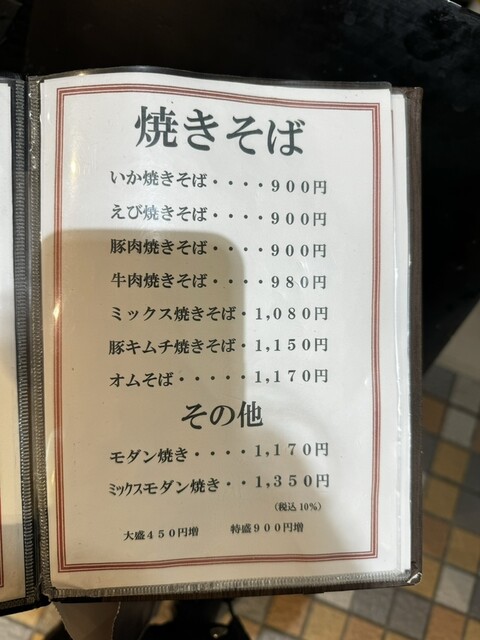 焼きそば
いか焼きそば・・・・900円
えび焼きそば・・・・900円
豚肉焼きそば・・・・900円
牛肉焼きそば・・・・980円
ミックス焼きそば・1,080円
豚キムチ焼きそば・1,150円
オムそば・・・・・1,170円
その他
モダン焼き・・・・1,170円
ミックスモダン焼き・・1,350円
(税込10%)
大盛450円増 特盛900円増